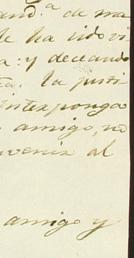 and.ª de ma
le ha sido vi
a: y deceando
ta. la justi
interponga
amigo, no
convenir al
amigo y